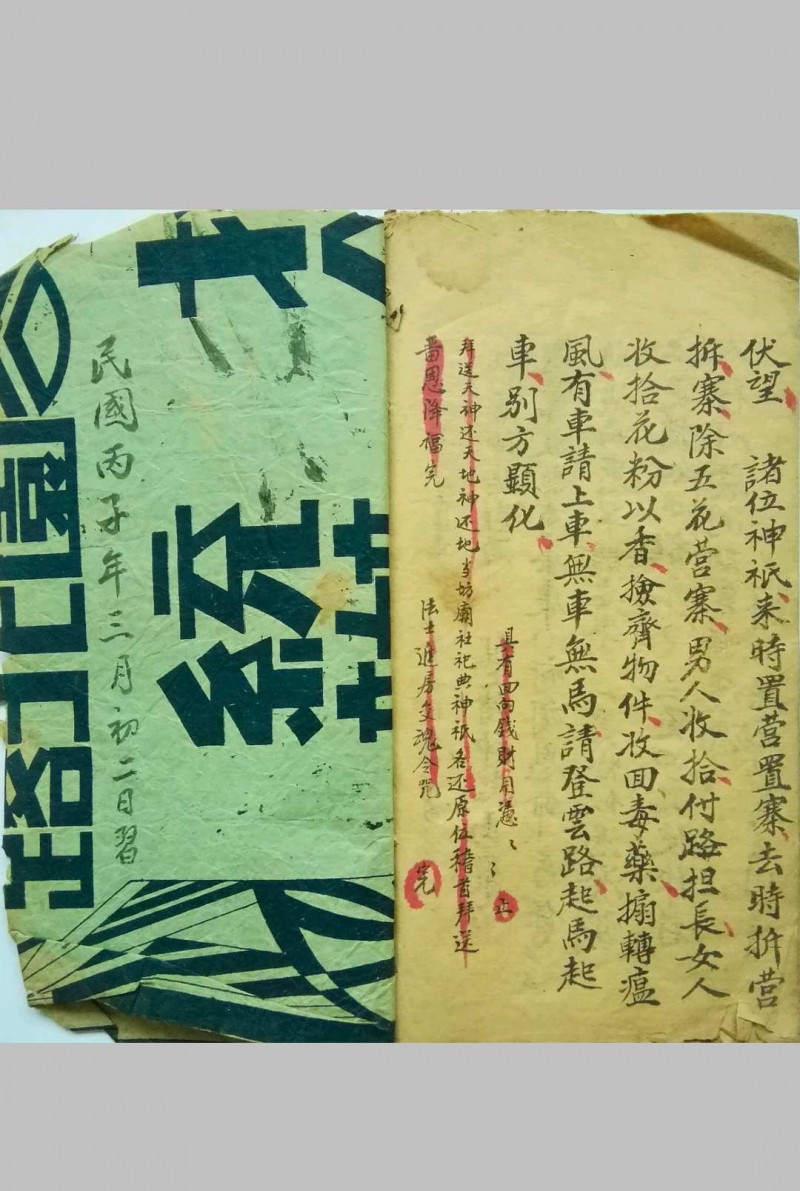 伏望　諸位神祇来時置营置寨去時拆营
拆寨除五花营寨男人收拾付路担長女人
收拾花粉以香撿齊物件收回毒藥搧轉瘟
風有車請上車無車無馬請登雲路起馬起
車别方顯化
具有回向錢財用憑
拜送天神还天地神还地当坊廟社祀典神祇各还原位稽首拜送
畱恩降福完
法士進房交魂令咒　完
民國丙子年三月初二日習